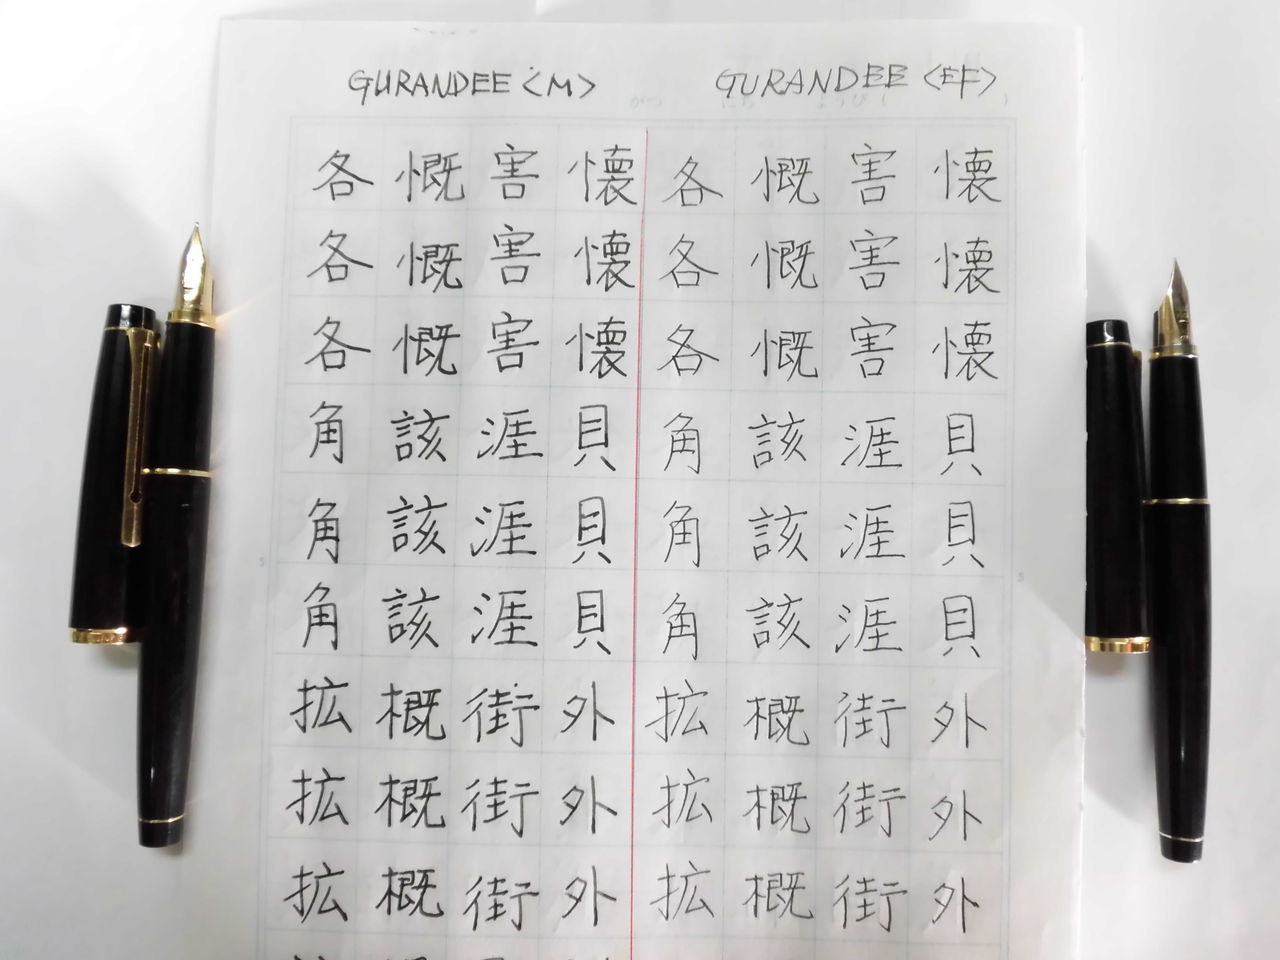 GURANDEE <M> GURANDEE <EF>
がつ にち ようび( )
各 慨 害 懐 各 慨 害 懐
各 慨 害 懐 各 慨 害 懐
各 慨 害 懐 各 慨 害 懐
角 該 涯 貝 角 該 涯 貝
角 該 涯 貝 角 該 涯 貝
5 5
角 該 涯 貝 角 該 涯 貝
拡 概 街 外 拡 概 街 外
拡 概 街 外 拡 概 街 外
拡 概 街 外 拡 概 街 外